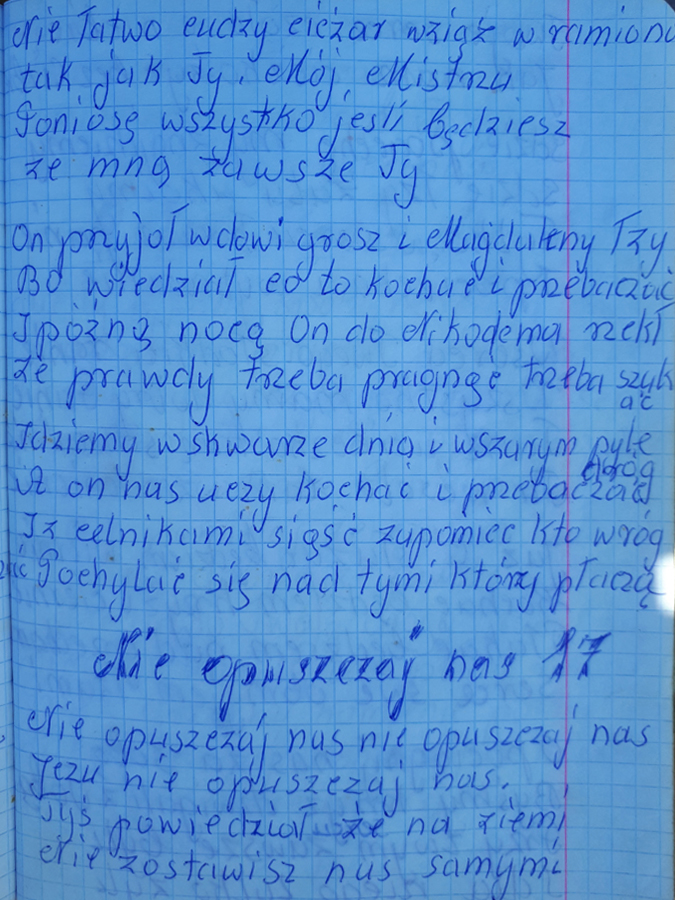 Nie łatwo cudzy ciężar wziąź w ramiona
tak jak Ty, Mój Mistrzu
Poniosę wszystko jeśli będziesz
ze mną zawsze Ty
On przyjoł wdowi grosz i Magdaleny łzy
Bo wiedział co to kochać i przebaczać
I późną nocą On do Nikodema rzekł
że prawdy trzeba pragnąć trzeba szuk
ać
Idziemy w skwarze dnia i wszarym pyle
dróg
A on nas uczy kochać i przebaczać
I z celnikami siąść zapomieć kto wróg
Pochylać się nad tymi którzy płaczą
Nie opuszczaj nas 17
Nie opuszczaj nas nie opuszczaj nas
Jezu nie opuszczaj nas.
Tyś powiedział że na ziemi
Nie zostawisz nas samymi